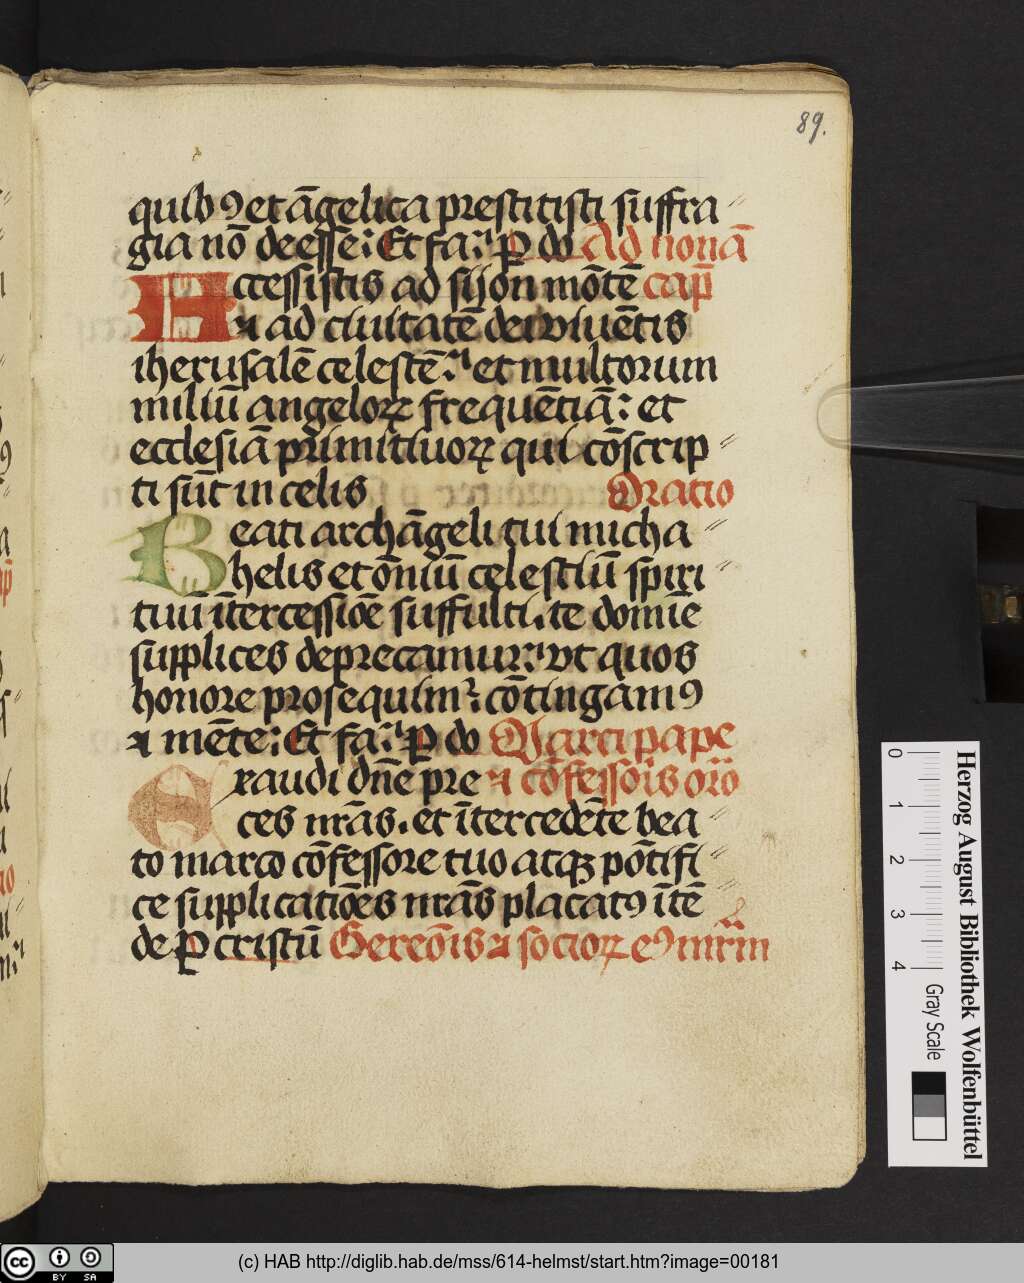 89.
quibꝯ et āgelica prestitisti suffra〃
gia nō deesse: Et fa: P do Ad nonā
Accessistis ad sijon mōtē cap̄
⁊ ad ciuitatē dei viuētis
iherusalē celestē: et multorum
miliū angeloꝝ frequētiā: et
ecclesiā primitiuoꝝ qui cōscrip〃
ti sūt in celis Oratio
Beati archāgeli tui micha〃
helis et ōniū celestiū spiri〃
tuū ītercessiōe suffulti. te domīe
supplices deprecamur: vt quos
honore prosequim᷑: cōtingamꝯ
⁊ mēte: Et fa: P do Marci pape
Exaudi dn̄e pre ⁊ cōfessoris orō
ces nr̄as. et ītercedēte bea
to marco cōfessore tuo atqꝫ pōtifi〃
ce supplicatiōes nr̄as placatꝯ ītē〃
de P cristū Gereōis ⁊ socioꝝ eꝯ mr̄m
0 1 2 3 4
Gray Scale
Herzog August Bibliothek Wolfenbüttel
cc BY SA
(c) HAB http://diglib.hab.de/mss/614-helmst/start.htm?image=00181